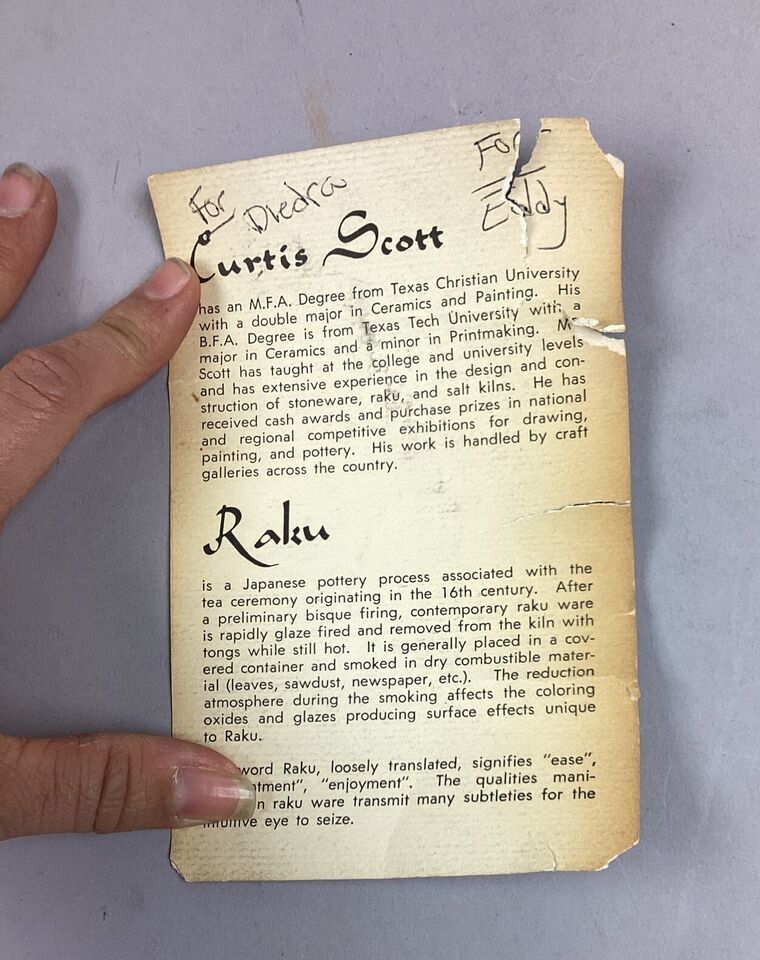 For Diedra
For
Eddy
Curtis Scott
has an M.F.A. Degree from Texas Christian University
with a double major in Ceramics and Painting. His
B.F.A. Degree is from Texas Tech University with a
major in Ceramics and a minor in Printmaking.
Scott has taught at the college and university levels
and has extensive experience in the design and con-
struction of stoneware, raku, and salt kilns. He has
received cash awards and purchase prizes in national
and regional competitive exhibitions for drawing,
painting, and pottery. His work is handled by craft
galleries across the country.
Raku
is a Japanese pottery process associated with the
tea ceremony originating in the 16th century. After
a preliminary bisque firing, contemporary raku ware
is rapidly glaze fired and removed from the kiln with
tongs while still hot. It is generally placed in a cov-
ered container and smoked in dry combustible mater-
ial (leaves, sawdust, newspaper, etc.). The reduction
atmosphere during the smoking affects the coloring
oxides and glazes producing surface effects unique
to Raku.
word Raku, loosely translated, signifies "ease",
"enjoyment". The qualities mani-
raku ware transmit many subtleties for the
intuitive eye to seize.